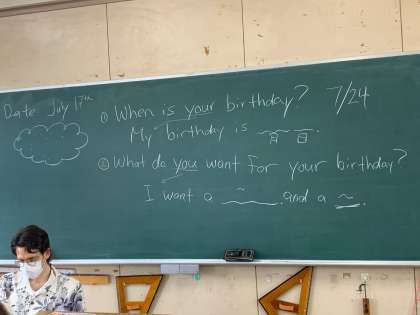 Date July 17th
① When is your birthday? 7/24
My birthday is 月 日.
② What do you want for your birthday?
I want a ~ and a ~.